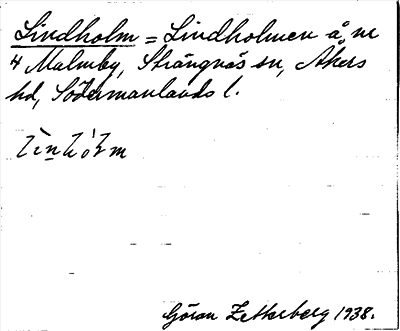 Lindholm = Lindholmen å, nr
4 Malmby, Strängnäs sn, Åkers
hd, Södermanlands l.
Göran Zetterberg 1938.